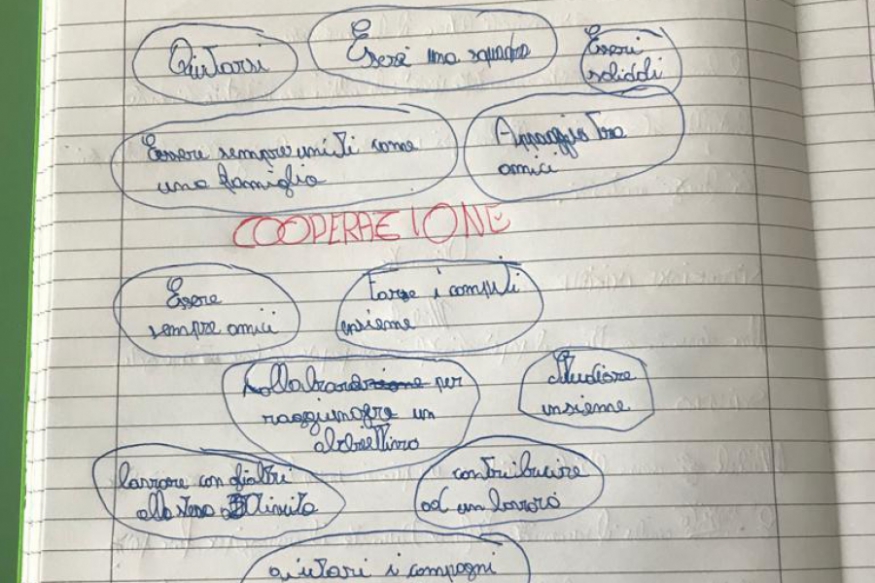 Aiutarsi
Essere una squadra
Esseri
solidali
Essere sempre uniti come
una famiglia
Appoggio tra
amici
COOPERAZIONE
Essere
sempre amici
Farse i compiti
insieme
per
raggiungere un
obbiettivo
Studiare
insieme
con gl'altri
contribuire
ad un lavoro
aiutari i compagni